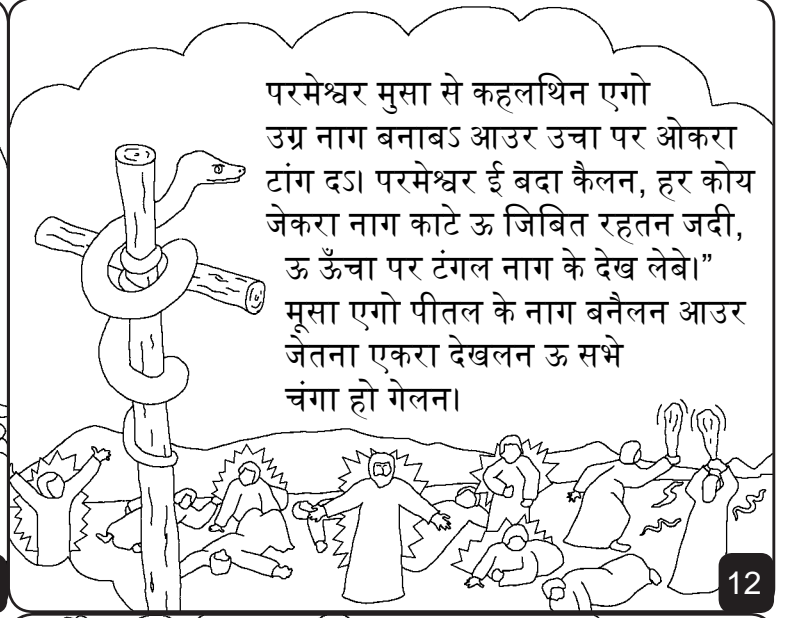 परमेश्वर मुसा से कहलथिन एगो
उग्र नाग बनाबऽ आउर उचा पर ओकरा
टांग दऽ। परमेश्वर ई बदा कैलन, हर कोय
जेकरा नाग काटे ऊ जिबित रहतन जदी,
ऊ ऊँचा पर टंगल नाग के देख लेबे।”
मूसा एगो पीतल के नाग बनैलन आउर
जेतना एकरा देखलन ऊ सभे
चंगा हो गेलन।
12